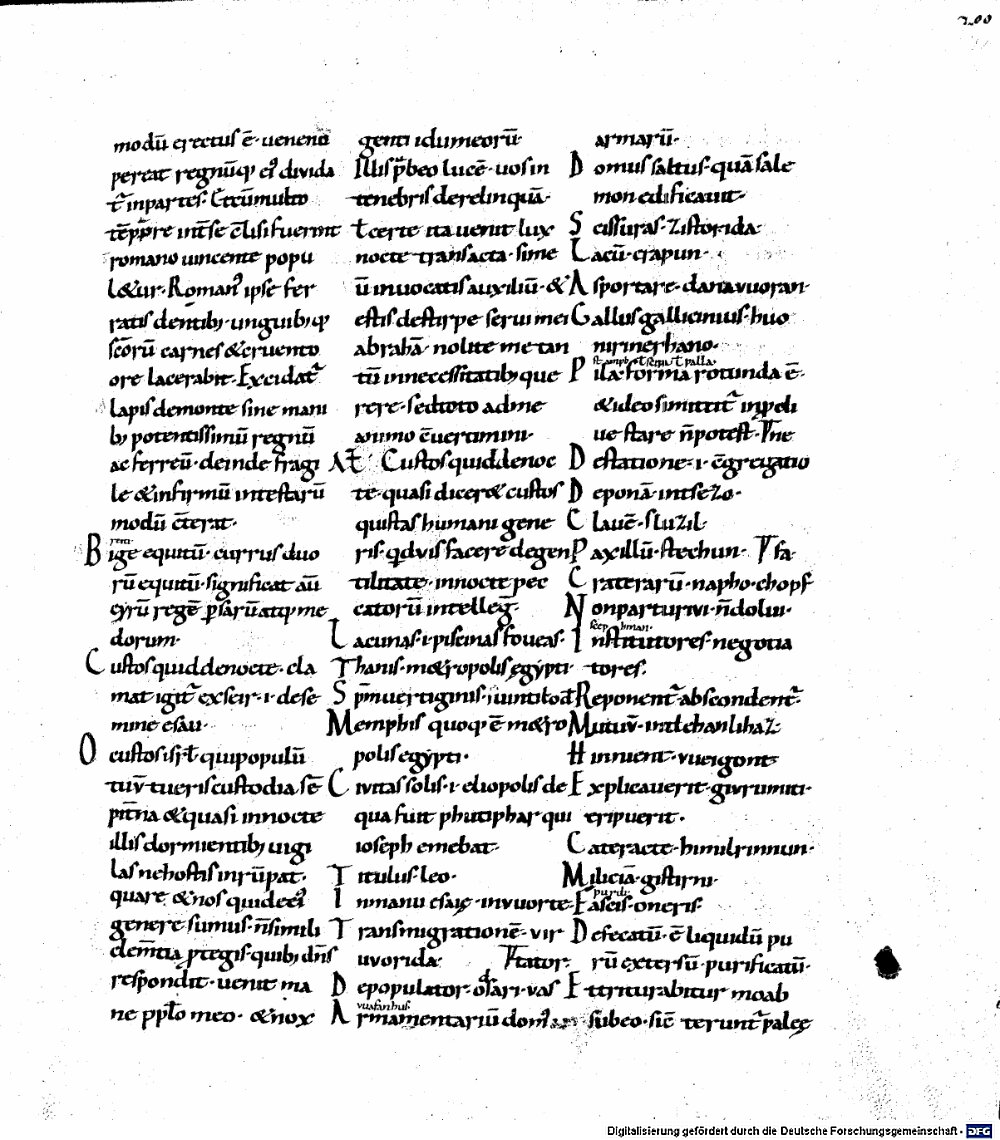 200
modū erectus ē· ueneno
pereat regnūq; ei' diuida
t̄ inpartes·
tēp̄re int̄se c̄lisi fuerint
romano uincente popu
l&ur· Roman' ipse fer
ratis dentib; unguib;q;
sc̄orū carnes & cruento
ore lacerabit· Excidat̄
lapis demonte sine mani
b; potentissimū regnū
ac ferreū· deinde fragi
le & infirmū intestarū
modū c̄terat·
Bige equitū· currus duo
rū equitū· significat aū
cyrū regē p̄sarū atq; me
dorum·
Custos quid denocte· cla
mat igit̄ exseir· i· dese
mine esau·
O custos isrł qui populū
tuū tueris custodia sēp
pit̄na & quasi innocte
illis dormientib; uigi
las ne hostis inrūpat·
quare & nos qui de ei'
genere sumus· n̄ simili
clem̄tia p̄tegis· quib; dn̄s
respondit· uenit ma
ne pp̄lo meo· & nox
genti idumeorū·
Illis p̄beo lucē· uos in
tenebris derelinquā·
t̄ certe ita uenit lux
nocte transacta· si me
ū inuocatis auxiliū· &
estis destirpe serui mei
abrahā· nolite me tan
tū innecessitatib; que
rere· sed toto ad me
animo c̄uertimini·
At̄ Custos quid denoc
te· quasi diceret custos
qui stas humani gene
ris· qd uis facere de gen
tilitate· innocte pec
catorū intelleḡ·
Lacunas· i· piscinas foueas·
Thanis· m&ropolis egypti·
Sp̄m uertiginis·
Memphis quoq; ē m&ro
polis egypti·
Ciuitas solis· i· eliopolis de
qua fuit phutiphar qui
ioseph emebat·
Titulus leo·
In manu esaię· inuuorte
Transmigrationē· vir
uvorida·
Depopulator· osari· vas
vuafanhus
Armamentariū dom'
armarū·
Domus saltus· quā sale
mon edificauit·
Scissuras· zistorida·
Lacū· crapun·
Asportare· dana vuoran·
Gallus gallicinius· huo
nirinerhano·
Pila· forma rotunda ē·
& ideo si mittit̄ inpeli
ue stare n̄ potest·
De statione· i· c̄gregatio
Deponā intsezo·
Clauē· sluzil·
Paxillū· stechun·
Craterarū· napho· chopf
Non parturiui· n̄ dolui·
Institutores· negotia
tores·
Reponent̄ abscondent̄·
Mutuū·
Hinnient· vueigont
Explicauerit· givrumiti·
eripuerit·
Cateracte· himilrinnun·
Miliciā· gistirni·
purdi·
Fascis· oneris·
Defecatū· ē liquidū pu
rū extersū· purificatū·
Et triturabitur moab
subeo· sic̄ terunt̄ palee
Digitalisierung gefördert durch die Deutsche Forschungsgemeinschaft - DFG